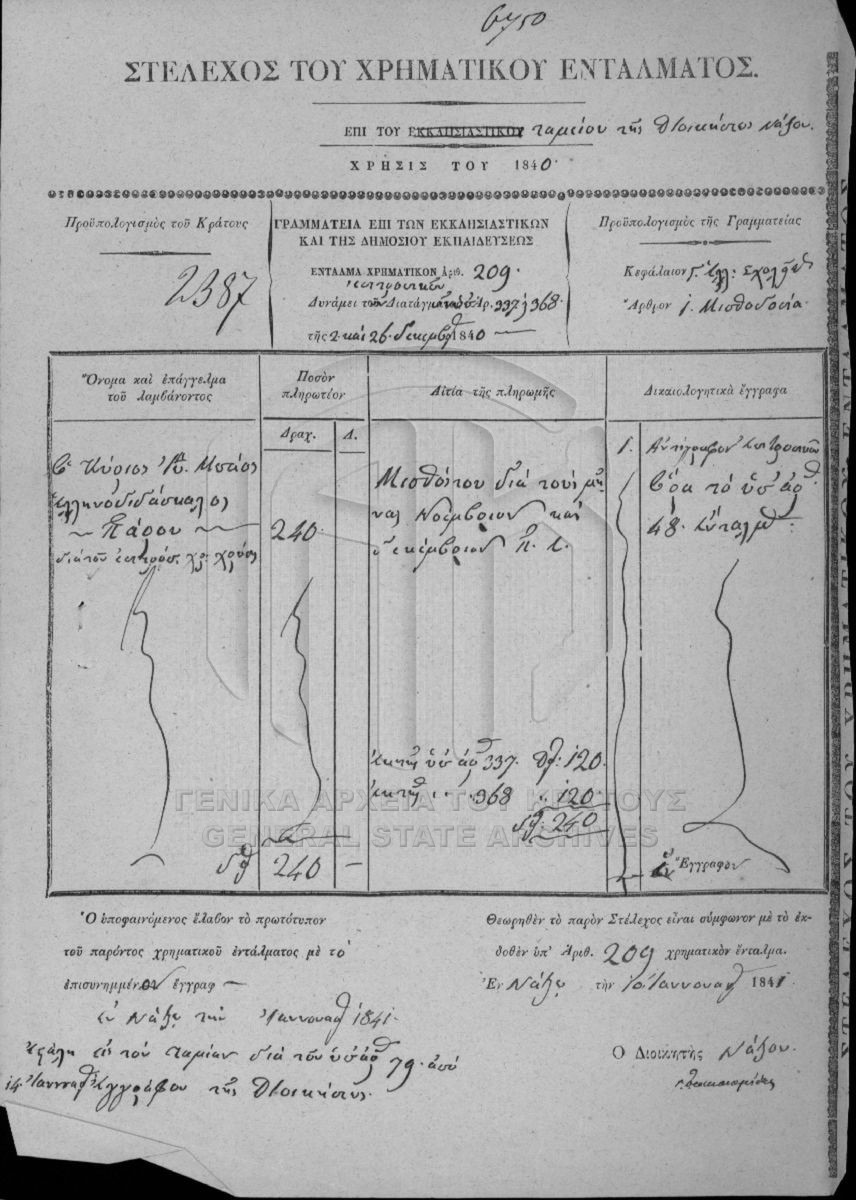 6750
ΣΤΕΛΕΧΟΣ ΤΟΥ ΧΡΗΜΑΤΙΚΟΥ ΕΝΤΑΛΜΑΤΟΣ.
ΕΠΙ ΤΟΥ ΕΚΚΛΗΣΙΑΣΤΙΚΟΥ ταμείου τῆς Διοικήσεως Νάξου.
ΧΡΗΣΙΣ ΤΟΥ 1840.
Προϋπολογισμὸς τοῦ Κράτους
2387
ΓΡΑΜΜΑΤΕΙΑ ΕΠΙ ΤΩΝ ΕΚΚΛΗΣΙΑΣΤΙΚΩΝ
ΚΑΙ ΤΗΣ ΔΗΜΟΣΙΟΥ ΕΚΠΑΙΔΕΥΣΕΩΣ
ΕΝΤΑΛΜΑ ΧΡΗΜΑΤΙΚΟΝ Ἀριθ. 209
Δυνάμει Διατάγμ Ἀρ. 337 368.
τῆς 2 καὶ 26 Δεκεμβ 1840
Προϋπολογισμὸς τῆς Γραμματείας
Κεφάλαιον Γ. Ἑλλ: Σχολεῖα
Ἄρθρον 1. Μισθοδοσία
Ὄνομα καὶ ἐπάγγελμα
τοῦ λαμβάνοντος
Ποσὸν
πληρωτέον
Αἰτία τῆς πληρωμῆς
Δικαιολογητικὰ ἔγγραφα
Δραχ. Λ.
Κύριος
Ἑλληνοδιδάσκαλος
Πάρου
διὰ τοῦ
240
Μισθόν του διὰ τοὺς μῆ
νας Νοέμβριον καὶ
Δεκέμβριον
337. Δρ: 120.
368 120.
Δρ: 240
1. Ἀντίγραφον
Ὅρα τὸ ὑπ' ἀρ
48. ἔνταλμ
δρ 240 –
ἓν Ἔγγραφον
Ὁ ὑποφαινόμενος ἔλαβον τὸ πρωτότυπον
τοῦ παρόντος χρηματικοῦ ἐντάλματος μὲ τὸ
ἐπισυνημμένον ἔγγραφ
ἐν Νάξῳ τὴν Ἰανουαρ 1841.
εἰς τὸν ταμίαν διὰ τοῦ ὑπ' ἀρ 79. ἀπὸ
14. Ἰανουαρ ἐγγράφου τῆς Διοικήσεως.
Θεωρηθὲν τὸ παρὸν Στέλεχος εἶναι σύμφωνον μὲ τὸ ἐκ-
δοθὲν ὑπ' Ἀριθ. 209 χρηματικὸν ἔνταλμα.
Ἐν Νάξῳ τὴν 10 Ἰανουαρ 1841
Ὁ Διοικητὴς Νάξου.
ΓΕΝΙΚΑ ΑΡΧΕΙΑ ΤΟΥ ΚΡΑΤΟΥΣ
GENERAL STATE ARCHIVES